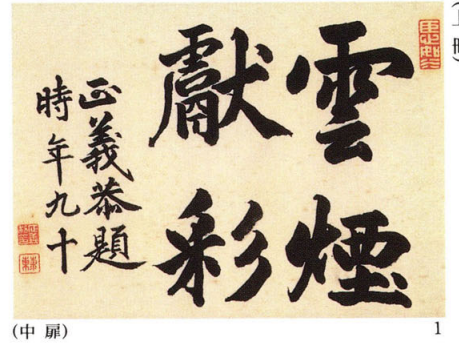 雲煙
獻彩
正義恭題
時年九十
(中 扉)
1